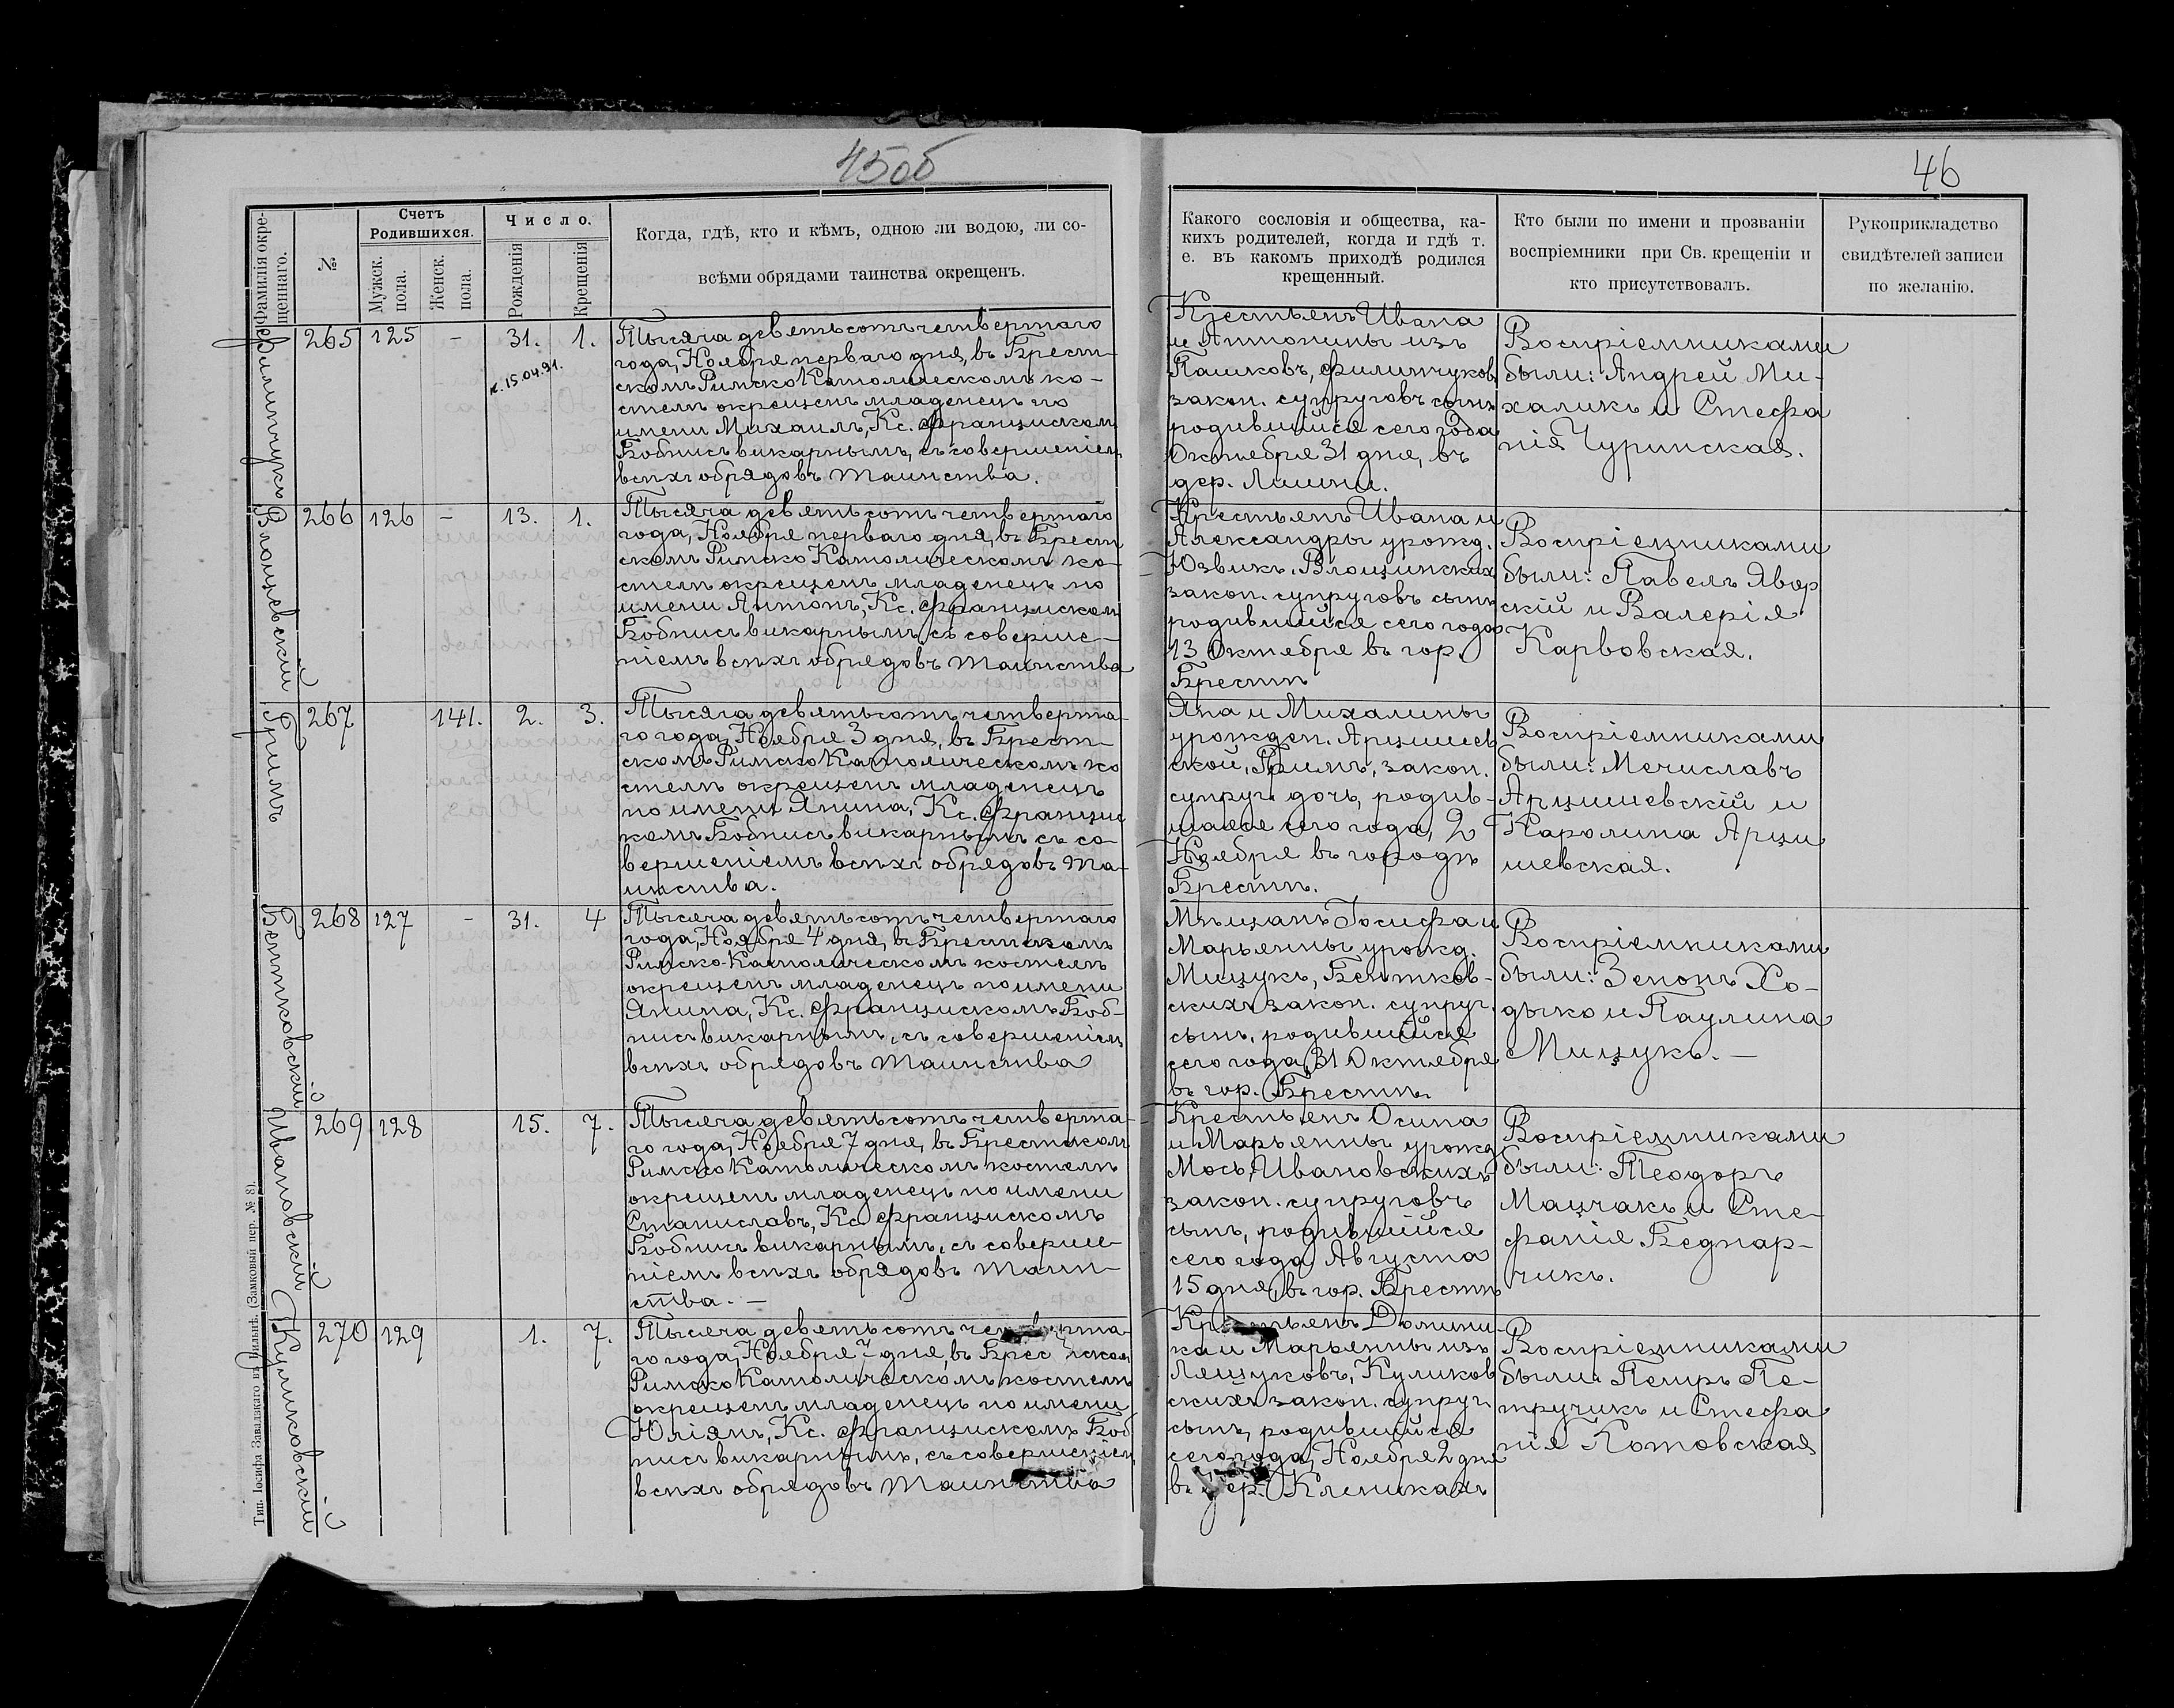 45об
46
Фамилія окре-
щеннаго.
№
Счетъ
Родившихся.
Мужск.
пола.
Женск.
пола.
Число.
Рожденія
Крещенія
Когда, гдѣ, кто и кѣмъ, одною ли водою, ли со-
всѣми обрядами таинства окрещенъ.
Какого сословія и общества, ка-
кихъ родителей, когда и гдѣ т.
е. въ какомъ приходѣ родился
крещенный.
Кто были по имени и прозванію
воспріемники при Св. крещеніи и
кто присутствовалъ.
Рукоприкладство
свидѣтелей записи
по желанію.
Филипчукъ
265 125 - 31. 1.
к. 15.04.91.
Тысяча девятьсотъ четвертаго
года, Ноября перваго дня, въ Брест-
скомъ Римско Католическомъ ко-
стелѣ окрещенъ младенецъ по
имени Михаилъ, Кс. Францискомъ
Бобнисъ викарнымъ, съ совершеніем
всѣхъ обрядовъ Таинства.
Крестьянъ Ивана
и Антонины изъ
Пашковъ, Филипчуков
закон. супруговъ сынъ
родившійся сего года
Октября 31 дня, въ
дер.
Воспріемниками
были: Андрей Ми-
халикъ и Стефа
нія Чуринская.
Влощевскій
266 126 - 13. 1.
Тысяча девятьсотъ четвертаго
года, Ноября перваго дня, въ Брест
скомъ Римско Католическомъ ко-
стелѣ окрещенъ младенецъ по
имени Антонъ, Кс. Францискомъ
Бобнисъ викарнымъ съ соверше-
ніемъ всѣхъ обрядовъ Таинства
Крестьянъ Ивана и
Александры урожд.
Юзвикъ, Влощинскихъ
закон. супруговъ сынъ
родившійся сего года
13 Октября въ гор.
Брестѣ
Воспріемниками
были: Павелъ Явор
скій и Валерія
Карвовская.
Гримъ
267 141. 2. 3.
Тысяча девятьсотъ четверта-
го года, Ноября 3 дня, въ Брест-
скомъ Римско Католическомъ ко
стелѣ окрещенъ младенецъ
по имени Янина, Кс. Францис
комъ Бобнисъ викарнымъ съ со-
вершеніемъ всѣхъ обрядовъ Та-
инства.
Яна и Михалины
урожден. Арцишев
ской, Гримъ, закон.
супруг. дочь, родив-
шаяся сего года, 2
Ноября въ городѣ
Брестѣ.
Воспріемниками
были: Мечиславъ
Арцишевскій и
Каролина Арци
шевская.
Бентковскій
268 127 - 31. 4
Тысяча девятьсотъ четвертаго
года, Ноября 4 дня, въ Брестскомъ
Римско-Католическомъ костелѣ
окрещенъ младенецъ по имени
Янина, Кс. Францискомъ Боб-
нисъ викарнымъ, съ совершеніем
всѣхъ обрядовъ Таинства
Мѣщанъ Іосифа и
Марьянны урожд.
Мищукъ, Бентков-
скихъ закон. супруг.
сынъ, родившійся
сего года, 31 Октября
въ гор. Брестѣ
Воспріемниками
были: Зенонъ Хо-
дыко и Паулина
Мищукъ. -
Ивановскій
269 128 15. 7.
Тысяча девятьсотъ четверта-
го года, Ноября 7 дня, въ Брестскомъ
Римско Католическомъ костелѣ
окрещенъ младенецъ по имени
Станиславъ, Кс. Францискомъ
Бобнисъ викарнымъ, съ соверше-
ніемъ всѣхъ обрядовъ Таин-
ства. -
Крестьянъ Осипа
и Марьянны урожд
Мось, Ивановскихъ
закон. супруговъ
сынъ, родившійся
сего года, Августа
15 дня, въ гор. Брестѣ
Воспріемниками
были: Теодоръ
Мацчакъ и Сте-
фанія Беднар-
чикъ.
Куликовскій
270 129 1. 7.
Тысяча девятьсотъ четверта
го года, Ноября 7 дня, въ Брестском
Римско Католическомъ костелѣ
окрещенъ младенецъ по имени
Юліянъ, Кс. Францискомъ Боб
нисъ викарнымъ, съ совершеніем
всѣхъ обрядовъ Таинства
Крестьянъ Домини-
ка и Марьянны изъ
Лещуковъ, Куликов
скихъ закон. супруг
сынъ, родившійся
сего года, Ноября 2 дня
въ дер. Клепикахъ
Воспріемниками
были: Петръ Пе-
тручикъ и Стефа
нія Котовская
Тип. Іосифа Завадзкаго въ Вильнѣ. (Замковый пер. № 8).